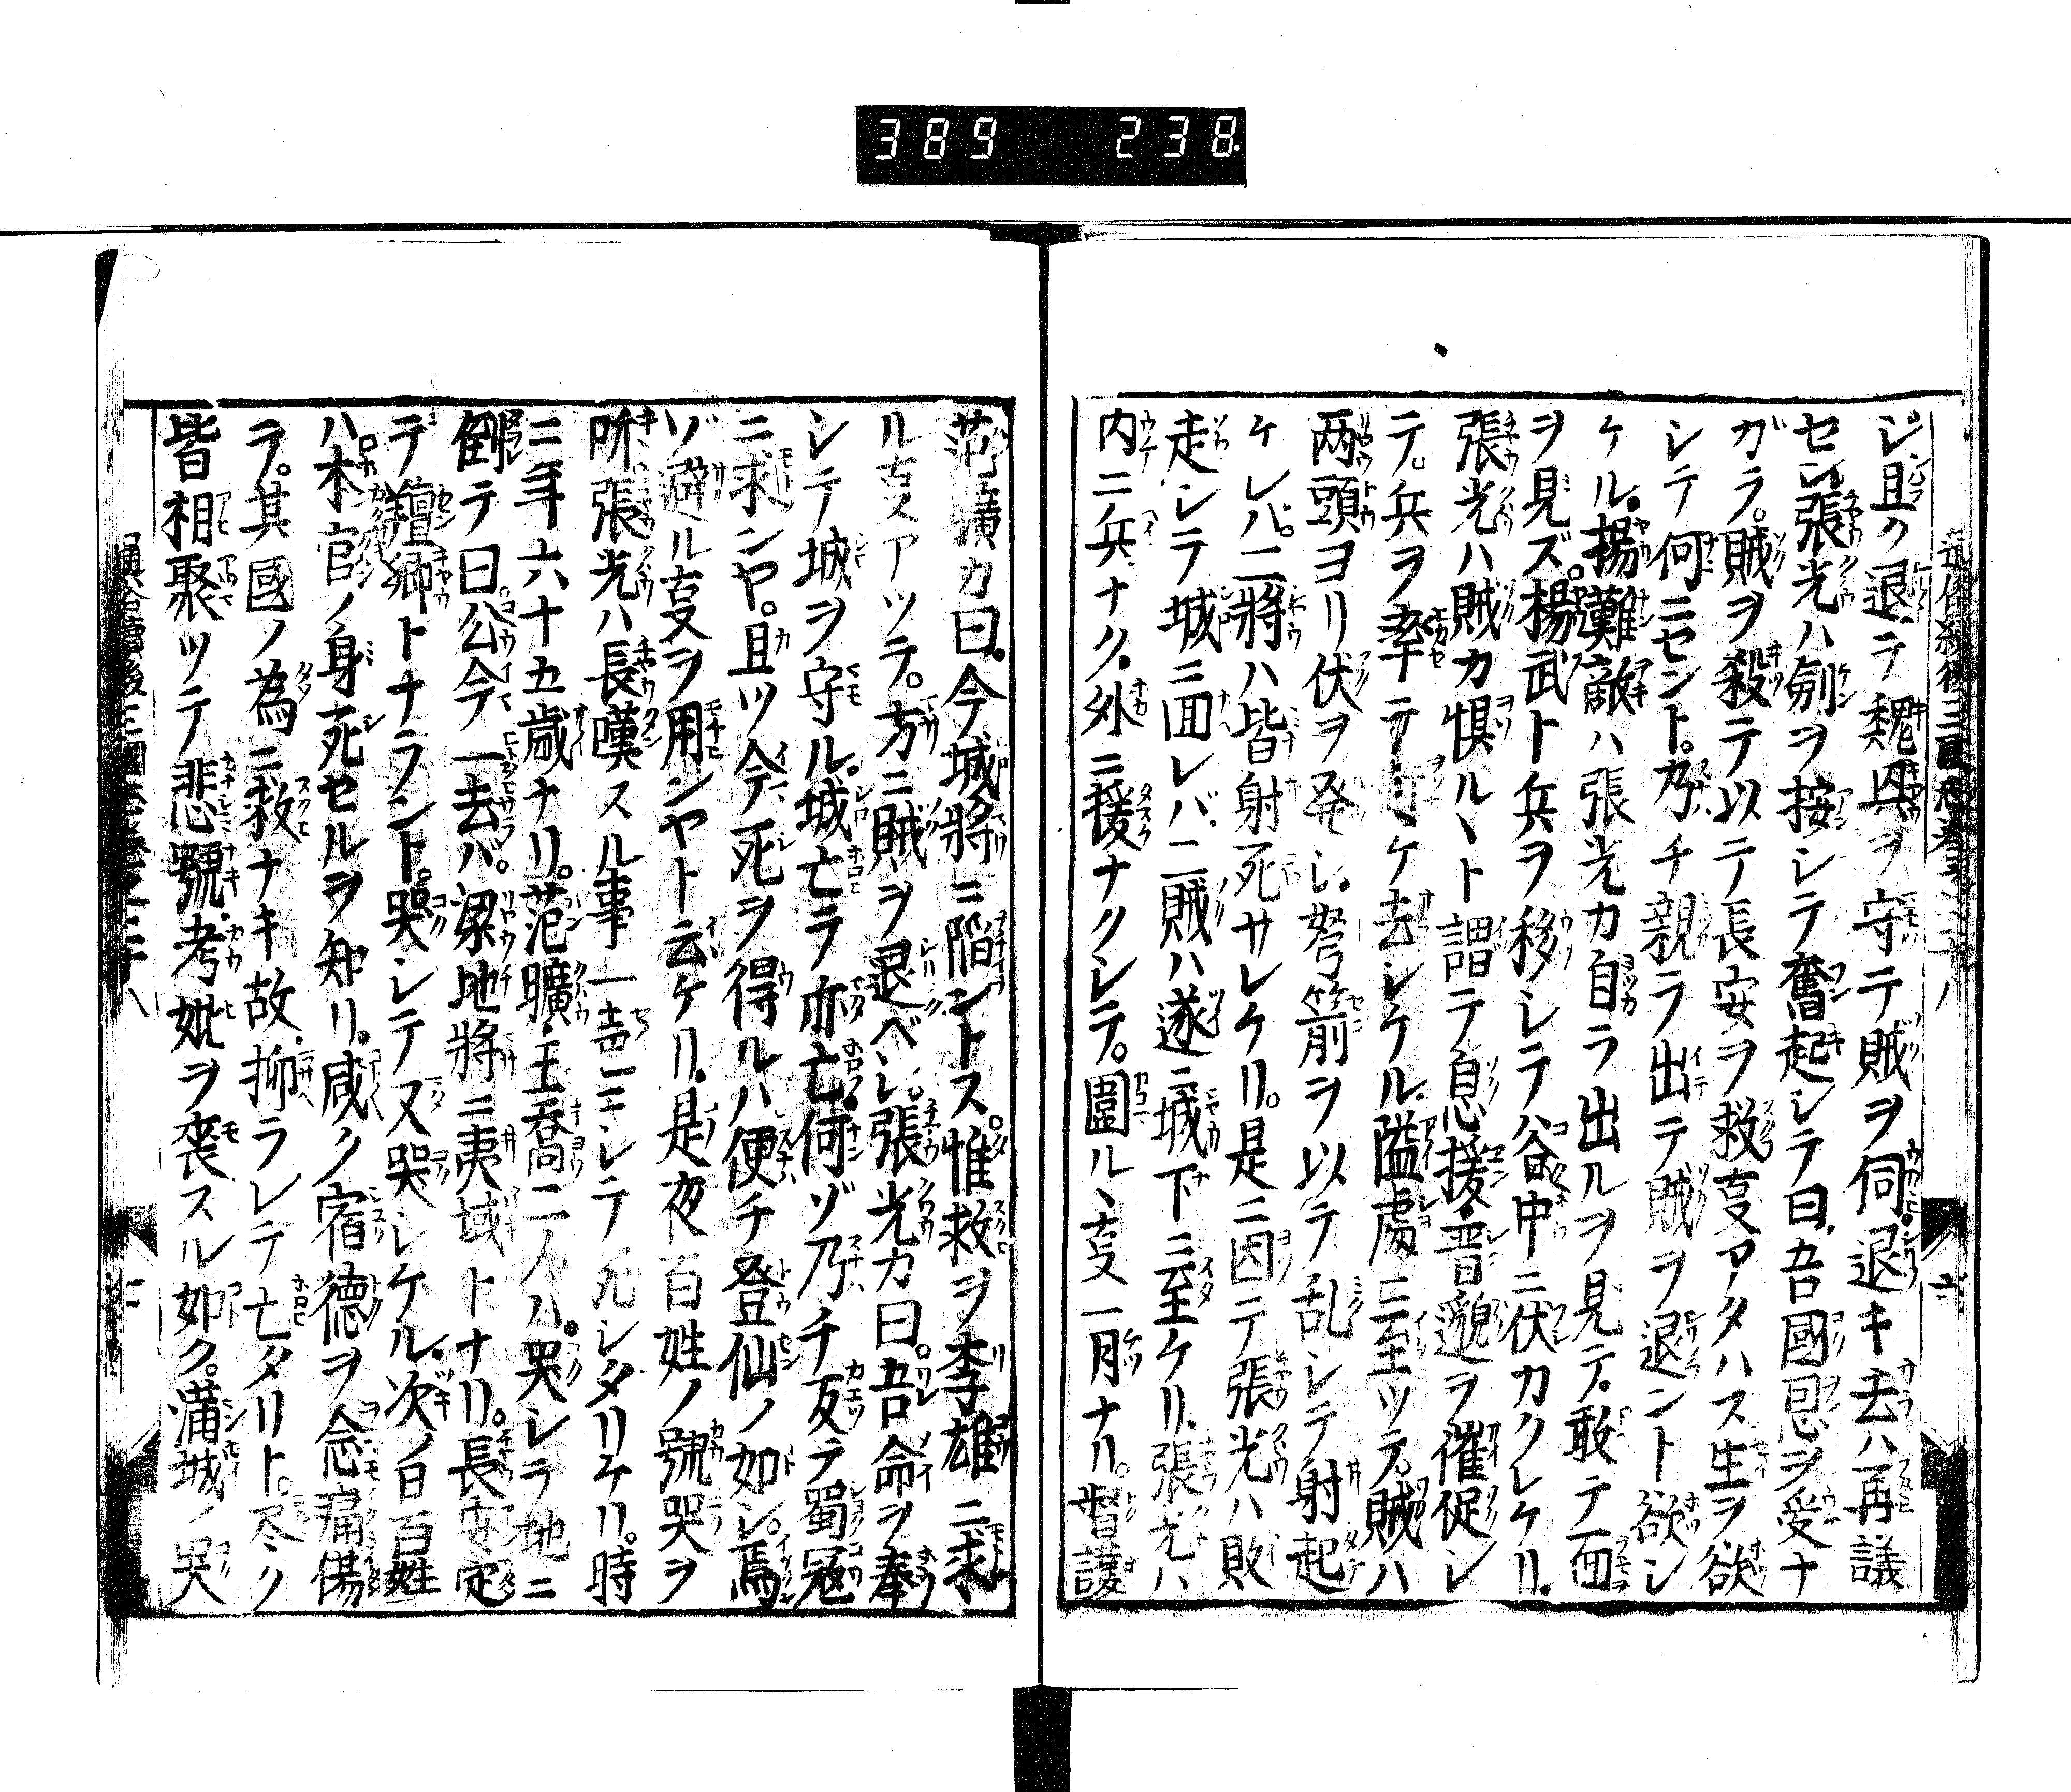 389 238.
ジ且ク退テ魏興ヲ守テ賊ヲ伺退キ去ハ再議
セン張光ハ劔ヲ按シテ奮起シテ曰吾國恩ヲ受ナ
ガラ賊ヲ殺テ以テ長安ヲ救ハス生ヲ欲
シテ何ニセント乃チ親ラ出テ賊ヲ退ント欲シ
ケル楊難敵ハ張光カ自ラ出ルヲ見テ敢テ面
ヲ見ズ楊武ト兵ヲ移シテ谷中ニ伏カクレケリ
張光ハ賊カ惧ルヽト謂テ息援晋邈ヲ催促シ
テ兵ヲ率テケ去シケル隘處ニ至ツテ賊ハ
兩頭ヨリ伏ヲ発シ弩箭ヲ以テ乱シテ射起
ケレバ二將ハ皆射死サレケリ是ニ因テ張光ハ敗
走シテ城ニ回レバ二賊ハ遂ニ城下ニ至ケリ張光ハ
内ニ兵ナク外ニ援ナクシテ圍ルヽ㕝一月ナリ督護
范曠カ曰今城將ニ陥ントス惟救ヲ李雄ニ求
ル㕝アツテ方ニ賊ヲ退ベシ張光カ曰吾命ヲ奉
シテ城ヲ守ル城亡ラ亦亡何ゾ乃チ反テ蜀冦
ニ求ンヤ且ツ今死ヲ得ルハ便チ登仙ノ如シ焉
ゾ避ル㕝ヲ用ンヤト云ケリ是夜百姓ノ號哭ヲ
听張光ハ長嘆スル事一声ニシテ死シタリケリ時
ニ年六十五歳ナリ范曠王喬二人ハ哭シテ地ニ
倒テ曰公今一去ハ梁地將ニ夷域トナリ長安定
テ羶郷トナラント哭シテ又哭シケル次ノ日百姓
ハ本官ノ身死セルヲ知リ咸ク宿德ヲ念痛傷
ラ其國ノ為ニ救ナキ故抑ラレテ亡タリト尽ク
皆相聚ツテ悲號考妣ヲ喪スル如ク蒲城ノ哭